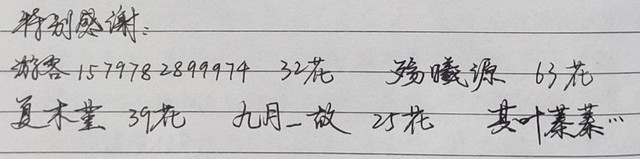 特别感谢：
游客1579782899974 32花 殇曦源 63花
夏木堇 39花 九月_故 25花 其叶蓁蓁…